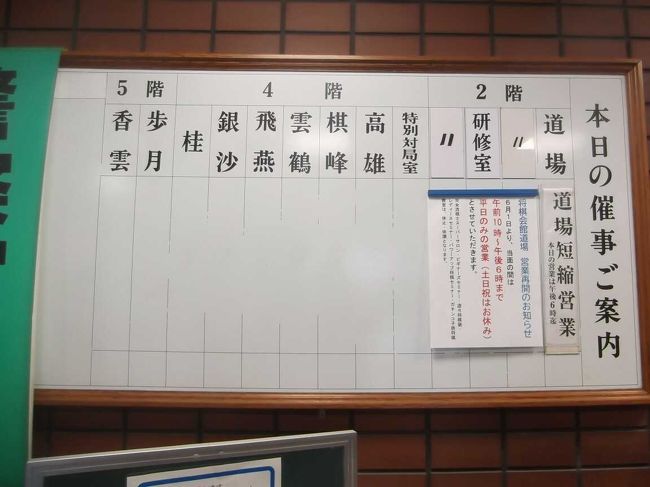 本日の催事ご案内
2階
道場
〃
研修室
〃
道場短縮営業
本日の営業は午後6時迄
将棋会館道場 営業再開のお知らせ
6月1日より、当面の間は
午前10時~午後6時まで
平日のみの営業(土日祝はお休み)
とさせていただきます。
4階
特別対局室
高雄
棋峰
雲鶴
飛燕
銀沙
桂
5階
歩月
香雲